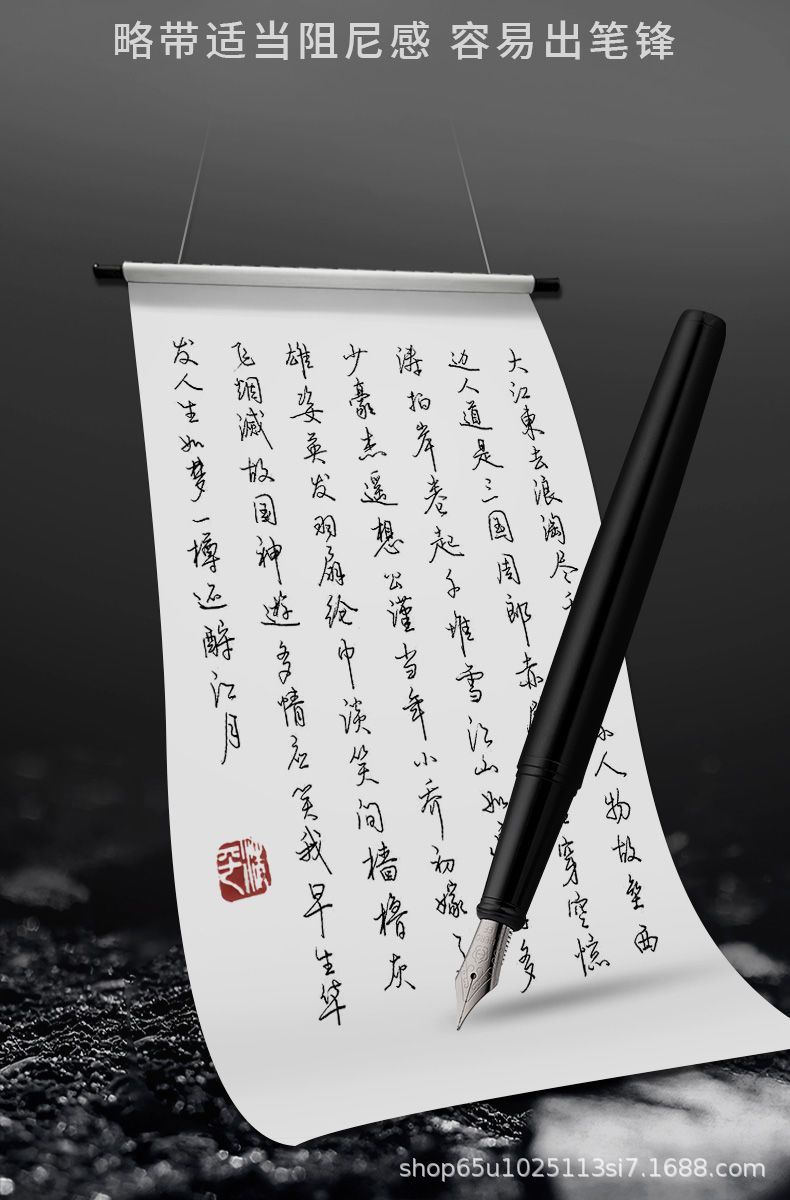 略带适当阻尼感 容易出笔锋
大江東去浪淘尽千人物故垒西
边人道是三国周郎赤穿空
涛拍岸卷起千堆雪江山如多
少豪杰遥想公谨当年小乔初嫁
雄姿英发羽扇纶巾淡笑间樯橹灰
飞烟滅故国神遊多情应笑我早生华
发人生如梦一樽还酹江月
shop65u1025113si7.1688.com